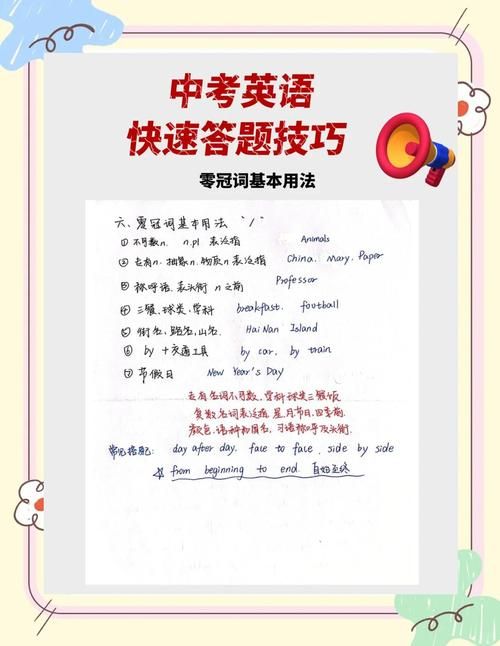 中考英语
快速答题技巧
零冠词基本用法
六、零冠词基本用法 "/"
① 不可数n. n.pl 表泛指 Animals
② 专有n. 抽象n. 物质n 表泛指 China, Mary, Paper
③ 称呼语、表头衔 n 之前 Professor
④ 三餐、球类、学科 breakfast. football
⑤ 街名、路名、山名. Hai Nan Island
⑥ by + 交通工具 by car, by train
⑦ 节假日 New Year's Day
专有名词不可数, 学科球类三餐饭
复数名词表泛指 星月节日、四季前
颜色、语种和国名, 习语称呼及头衔.
常见搭配: day after day. face to face. side by side
☆ from beginning to end. 自始至终